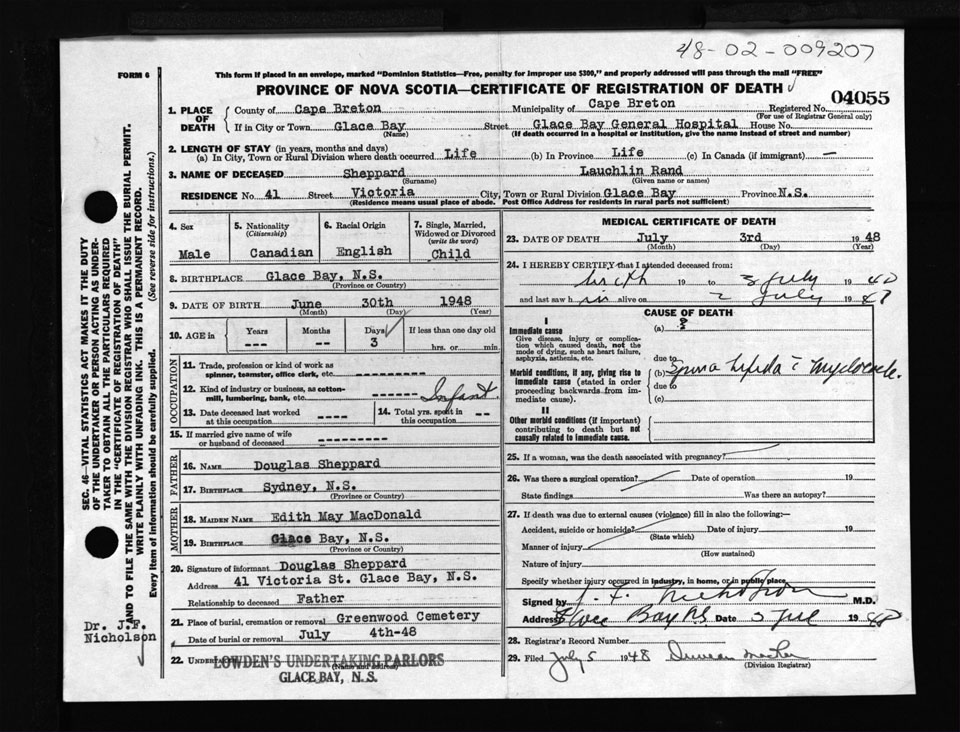 48-02-009207
FORM 6
This form if placed in an envelope, marked "Dominion Statistics—Free, penalty for improper use $300," and properly addressed will pass through the mail "FREE"
PROVINCE OF NOVA SCOTIA—CERTIFICATE OF REGISTRATION OF DEATH
04055
1. PLACE OF DEATH
County of Cape Breton Municipality of Cape Breton Registered No.
(For use of Registrar General only)
If in City or Town Glace Bay Street Glace Bay General Hospital House No.
(Name) (If death occurred in a hospital or institution, give the name instead of street and number)
2. LENGTH OF STAY (in years, months and days)
(a) In City, Town or Rural Division where death occurred Life (b) In Province Life (c) In Canada (if immigrant) —
3. NAME OF DECEASED Sheppard Lauchlin Rand
(Surname) (Given name or names)
RESIDENCE No. 41 Street Victoria City, Town or Rural Division Glace Bay Province N.S.
(Residence means usual place of abode. Post Office Address for residents in rural parts not sufficient)
SEC. 46—VITAL STATISTICS ACT MAKES IT THE DUTY
OF THE UNDERTAKER OR PERSON ACTING AS UNDER-
TAKER TO OBTAIN ALL THE PARTICULARS REQUIRED
IN THE "CERTIFICATE OF REGISTRATION OF DEATH"
AND TO FILE THE SAME WITH THE DIVISION REGISTRAR WHO SHALL ISSUE THE BURIAL PERMIT.
WRITE PLAINLY WITH UNFADING INK. THIS IS A PERMANENT RECORD.
Every item of information should be carefully supplied. (See reverse side for instructions.)
4. Sex
Male
5. Nationality
(Citizenship)
Canadian
6. Racial Origin
English
7. Single, Married,
Widowed or Divorced
(write the word)
Child
8. BIRTHPLACE Glace Bay, N.S.
(Province or Country)
9. DATE OF BIRTH June 30th 1948
(Month) (Day) (Year)
10. AGE in
Years Months Days If less than one day old
--- -- 3 hrs. or min.
OCCUPATION
11. Trade, profession or kind of work as
spinner, teamster, office clerk, etc. -----
12. Kind of industry or business, as cotton-
mill, lumbering, bank, etc. ------- Infant.
13. Date deceased last worked
at this occupation ----
14. Total yrs. spent in
this occupation --
15. If married give name of wife
or husband of deceased ----------
FATHER
16. NAME Douglas Sheppard
17. BIRTHPLACE Sydney, N.S.
(Province or Country)
MOTHER
18. MAIDEN NAME Edith May MacDonald
19. BIRTHPLACE Glace Bay, N.S.
(Province or Country)
20. Signature of informant Douglas Sheppard
Address 41 Victoria St. Glace Bay, N.S.
Relationship to deceased Father
21. Place of burial, cremation or removal Greenwood Cemetery
Date of burial or removal July 4th-48
22. UNDERTAKER LOWDEN'S UNDERTAKING PARLORS
(Name and address)
GLACE BAY, N.S.
Dr. J.F.
Nicholson
MEDICAL CERTIFICATE OF DEATH
23. DATE OF DEATH July 3rd 1948
(Month) (Day) (Year)
24. I HEREBY CERTIFY that I attended deceased from:
birth 19 to 3 July 1948
and last saw h im alive on 2 July 1948
CAUSE OF DEATH
I
Immediate cause
Give disease, injury or complica-
tion which caused death, not the
mode of dying, such as heart failure,
asphyxia, asthenia, etc.
(a) ?
due to
Morbid conditions, if any, giving rise to
immediate cause (stated in order
proceeding backwards from im-
mediate cause).
(b) Spina Bifida c Myelocele.
due to
(c)
II
Other morbid conditions (if important)
contributing to death but not
causally related to immediate cause.
25. If a woman, was the death associated with pregnancy?
26. Was there a surgical operation? Date of operation 19
State findings Was there an autopsy?
27. If death was due to external causes (violence) fill in also the following:—
Accident, suicide or homicide? Date of injury 19
(State which)
Manner of injury
(How sustained)
Nature of injury
Specify whether injury occurred in industry, in home, or in public place
Signed by J. F. Nicholson M.D.
Address Glace Bay N.S. Date 3 Jul 1948
28. Registrar's Record Number
29. Filed July 5 1948 Duncan
(Division Registrar)